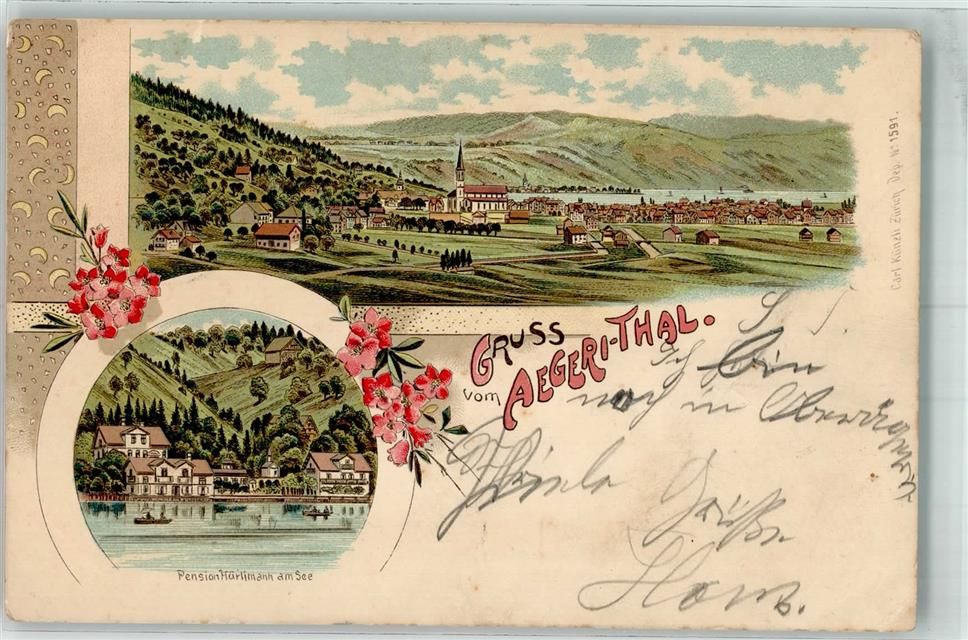 Carl Künzli Zürich, Dep. No 1591.
GRUSS
vom AEGERI-THAL.
Ich bin
noch in
Viele
Grüße
Hans.
Pension Hürlimann am See